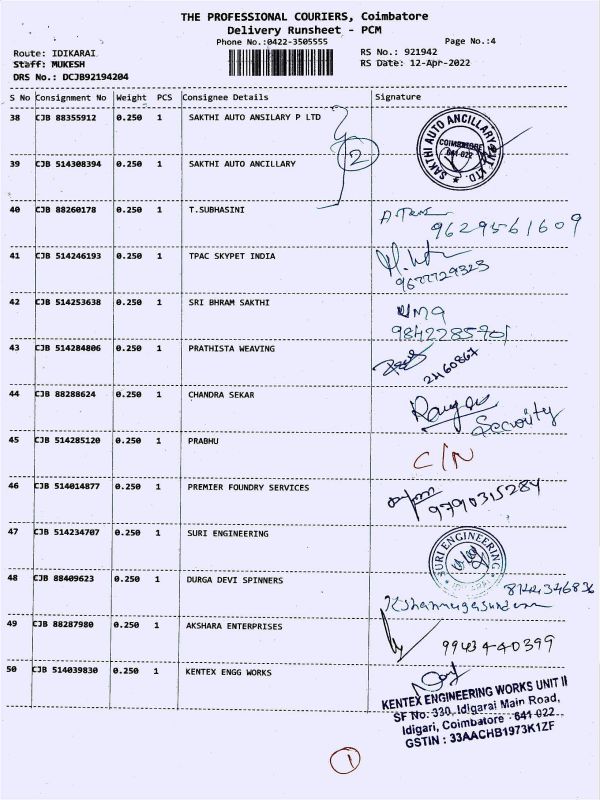 THE PROFESSIONAL COURIERS, Coimbatore
Delivery Runsheet - PCM
Phone No.:0422-3505555 Page No.:4
Route: IDIKARAI RS No.: 921942
Staff: MUKESH RS Date: 12-Apr-2022
DRS No.: DCJB92194204
S No Consignment No Weight PCS Consignee Details Signature
38 CJB 88355912 0.250 1 SAKTHI AUTO ANSILARY P LTD
SAKTHI AUTO ANCILLARY PVT LTD.
COIMBATORE
641 022
2
39 CJB 514308394 0.250 1 SAKTHI AUTO ANCILLARY
40 CJB 88260178 0.250 1 T.SUBHASINI
9629561609
41 CJB 514246193 0.250 1 TPAC SKYPET INDIA
9677729323
42 CJB 514253638 0.250 1 SRI BHRAM SAKTHI
UMA
9842285701
43 CJB 514284806 0.250 1 PRATHISTA WEAVING
2460867
44 CJB 88288624 0.250 1 CHANDRA SEKAR
Security
45 CJB 514285120 0.250 1 PRABHU
C/N
46 CJB 514014877 0.250 1 PREMIER FOUNDRY SERVICES
9790315284
47 CJB 514234707 0.250 1 SURI ENGINEERING
SURI ENGINEERING
48 CJB 88409623 0.250 1 DURGA DEVI SPINNERS
8144346836
K.Shanmugasundaram
49 CJB 88287980 0.250 1 AKSHARA ENTERPRISES
9943440399
50 CJB 514039830 0.250 1 KENTEX ENGG WORKS
KENTEX ENGINEERING WORKS UNIT II
SF No: 330, Idigarai Main Road,
Idigari, Coimbatore - 641 022
GSTIN : 33AACHB1973K1ZF
1